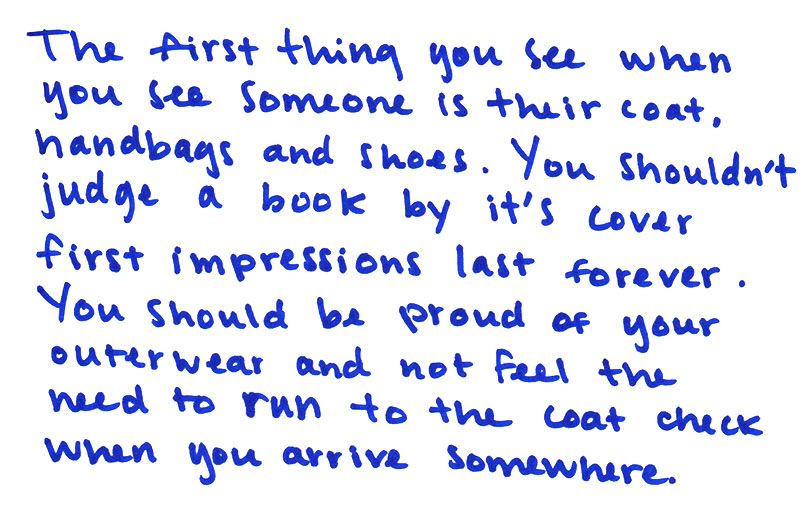 The first thing you see when
you see someone is their coat,
handbags and shoes. You shouldn't
judge a book by it's cover
first impressions last forever.
You should be proud of your
outerwear and not feel the
need to run to the coat check
when you arrive somewhere.